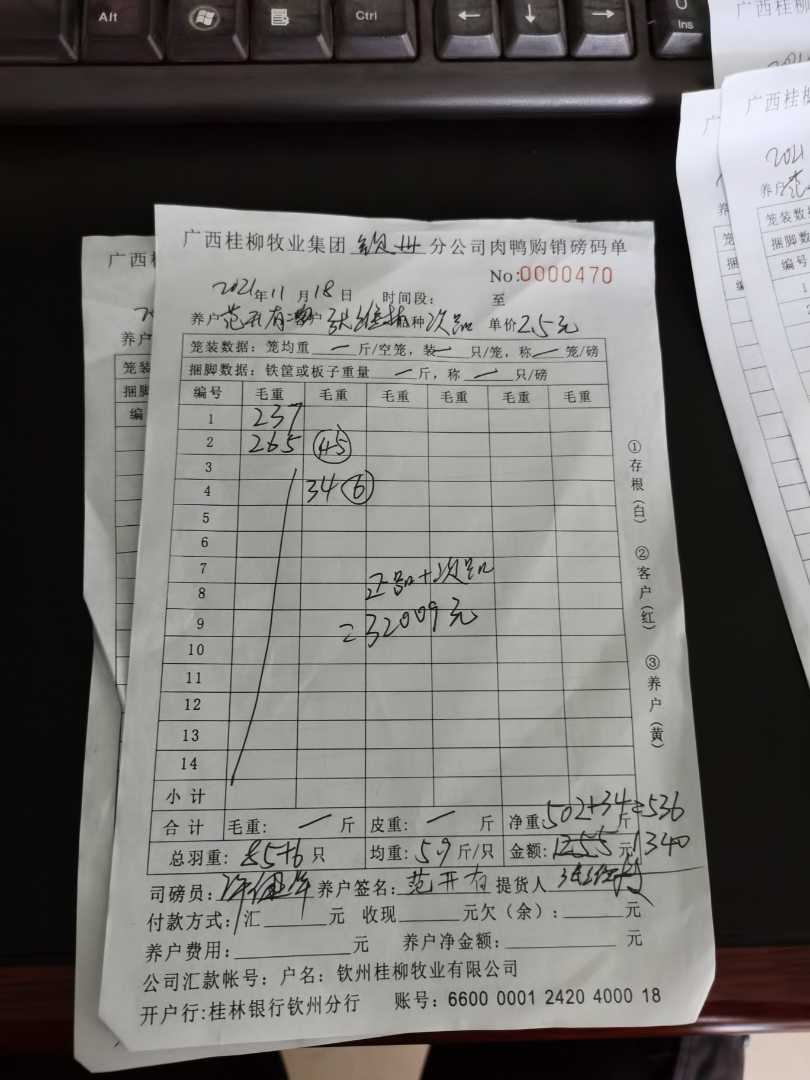 Alt
Ctrl
Ins
广西桂柳牧业集团 钦州 分公司肉鸭购销磅码单
No:0000470
2021年11月18日 时间段: 至
养户 范开有 客户 种 次品 单价 2.5元
笼装数据: 笼均重 一 斤/空笼, 装 一 只/笼, 称 一 笼/磅
捆脚数据: 铁筐或板子重量 一 斤, 称 一 只/磅
编号 毛重 毛重 毛重 毛重 毛重 毛重
1 237
2 265 45
3
4 34 6
5
6
7 正品+次品
8
9 =32009元
10
11
12
13
14
小计
合计 毛重: 一 斤 皮重: 一 斤 净重: 502+34=536 斤
总羽重: 85+6 只 均重: 5.9 斤/只 金额: 1255 元 1340
司磅员: 养户签名: 范开有 提货人
付款方式: 汇 元 收现 元欠(余): 元
养户费用: 元 养户净金额: 元
公司汇款帐号: 户名: 钦州桂柳牧业有限公司
开户行:桂林银行钦州分行 账号: 6600 0001 2420 4000 18
①存根(白) ②客户(红) ③养户(黄)
广西
养户
笼装
捆脚
编
广西桂柳
广西桂柳
2021
养户
笼装数据
捆脚数据
编号